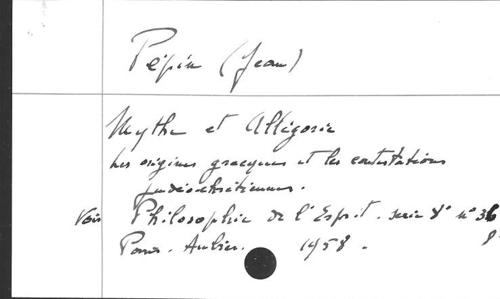 Pépin (Jean)
Mythe et Allégorie
Les origines grecques et les contestations
judéo-chrétiennes.
Voir Philosophie de l'Esprit. serie 8° n° 36
Paris. Aubier. 1958.